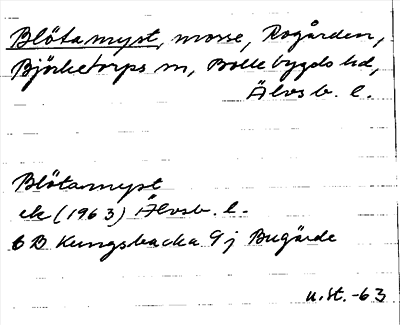 Blötamyst, mosse, Rogården,
Björketorps sn, Bollebygds hd,
Älvsb. l.
Blötamyst
ek (1963) Älvsb. l.
6 B Kungsbacka 9 j Bugärde
u.st. -63